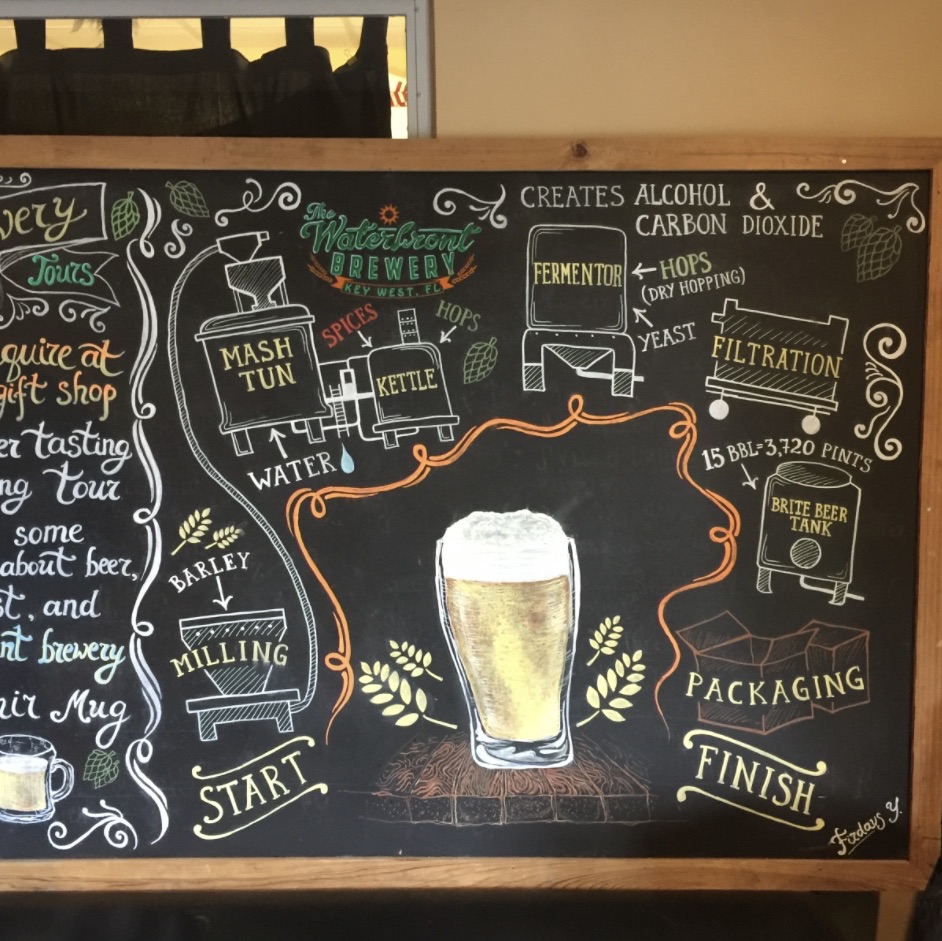 Tours
quire at
gift shop
er tasting
ng tour
some
about beer,
st, and
nt brewery
nir Mug
The
Waterfront
BREWERY
KEY WEST, FL
CREATES ALCOHOL &
CARBON DIOXIDE
MASH
TUN
SPICES
HOPS
KETTLE
WATER
FERMENTOR
HOPS
(DRY HOPPING)
YEAST
FILTRATION
15 BBL=3,720 PINTS
BRITE BEER
TANK
BARLEY
MILLING
PACKAGING
START
FINISH
Firdays Y.